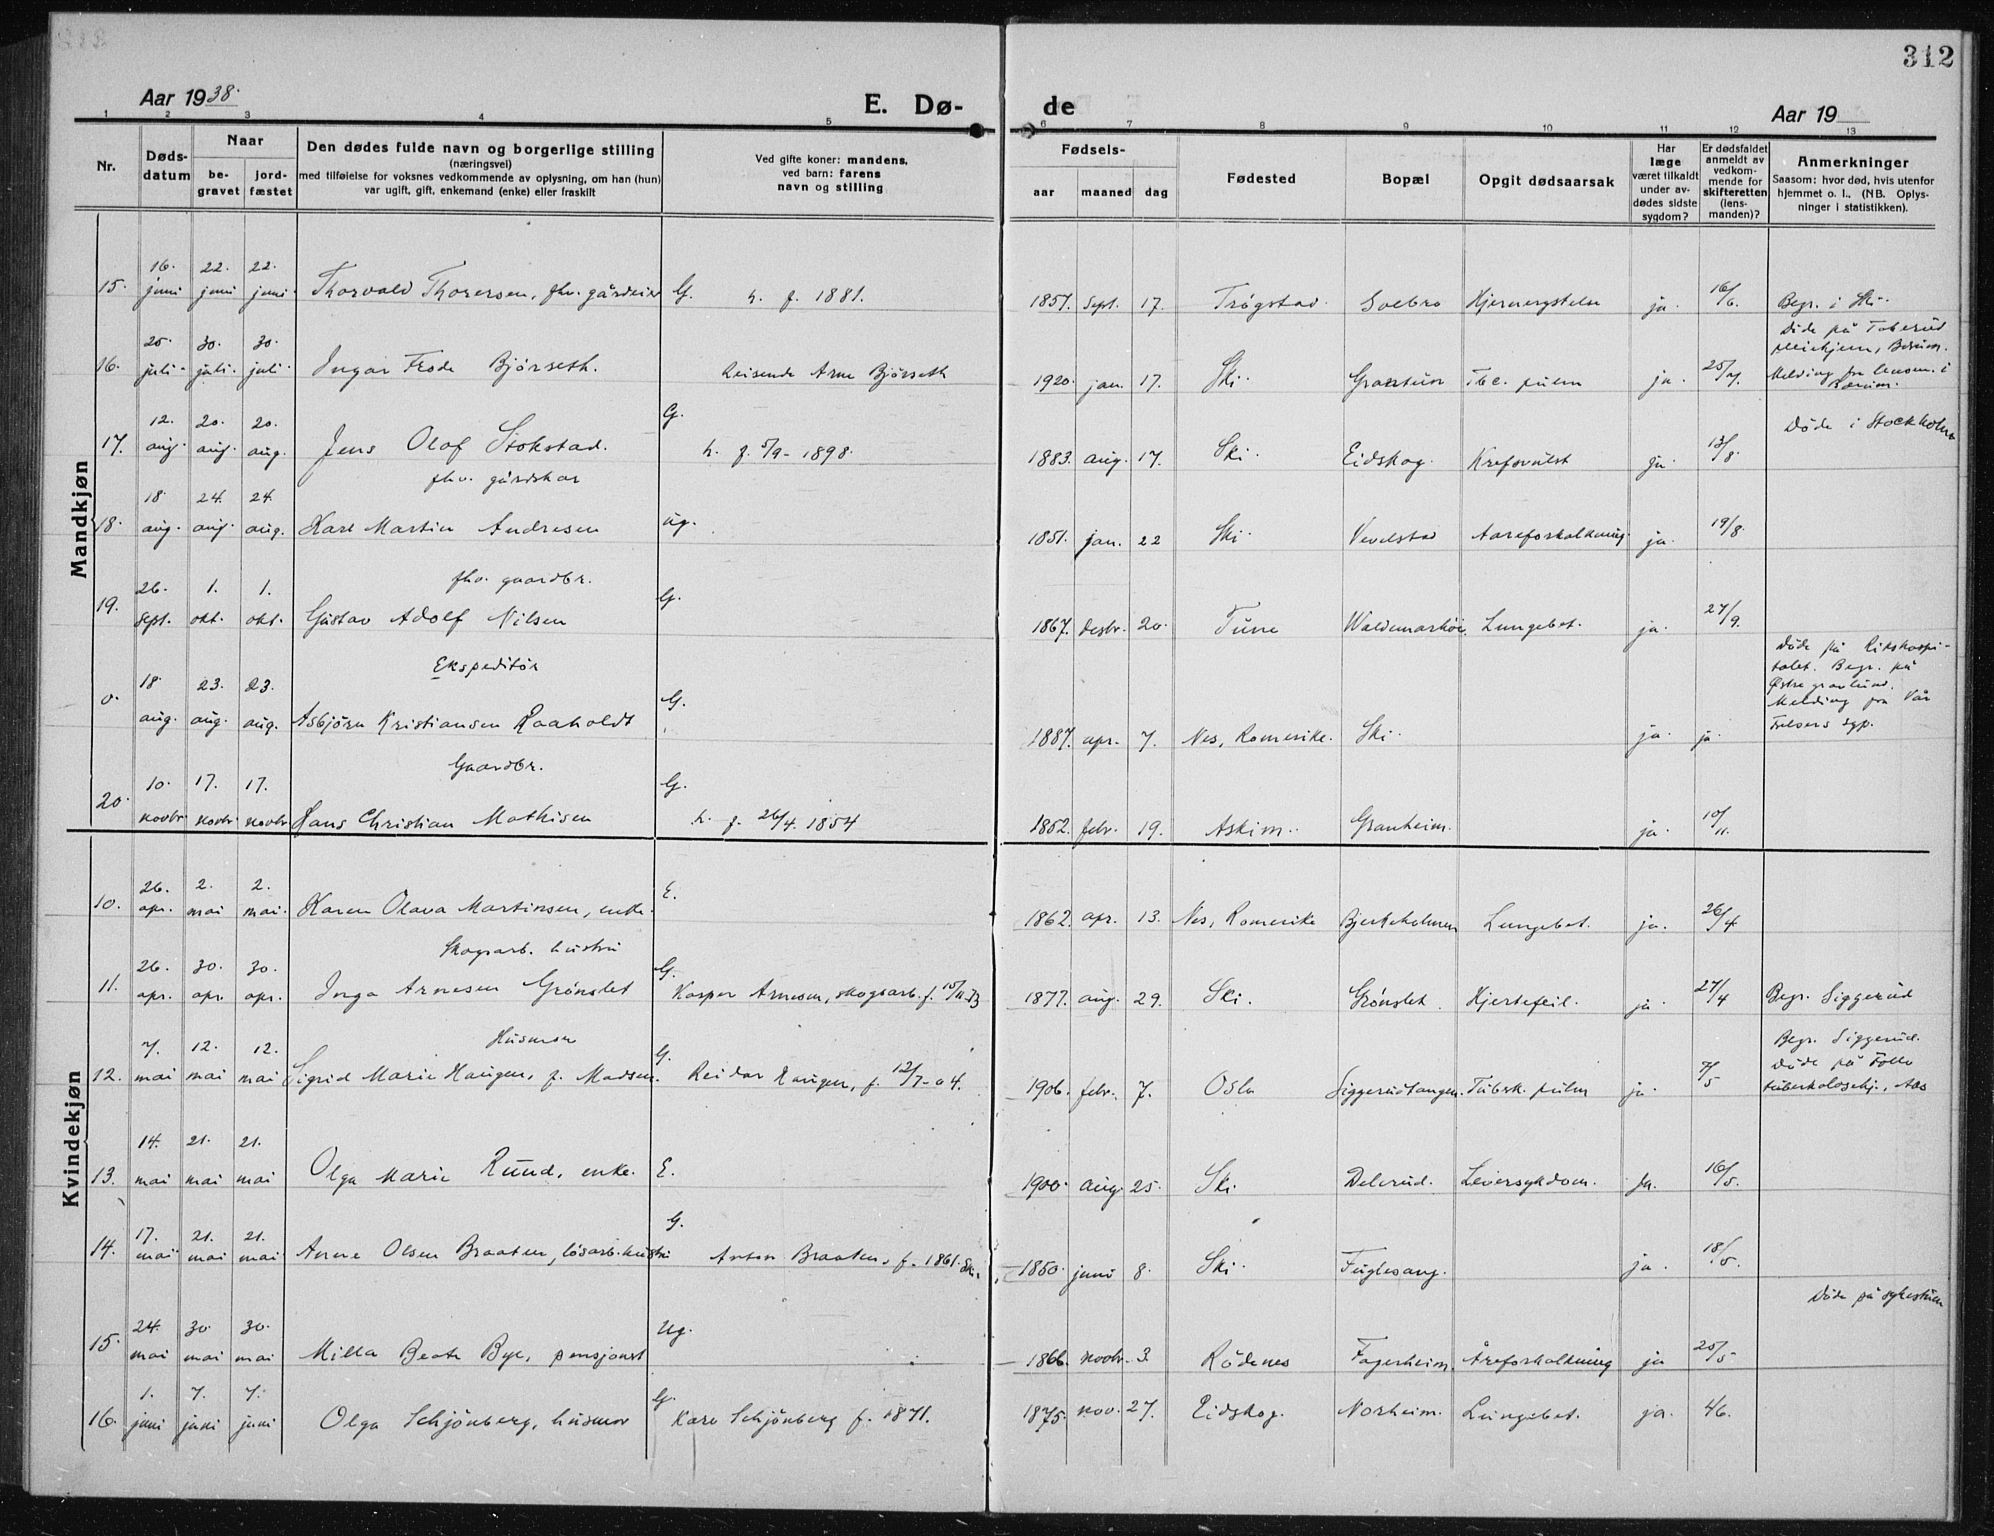 312
Aar 1938.
E. Dø-
de
Aar 19
1 2 3 4 5 6 7 8 9 10 11 12 13
Nr.
Døds-
datum
Naar
be-
gravet
jord-
fæstet
Den dødes fulde navn og borgerlige stilling
(næringsvei)
med tilføielse for voksnes vedkommende av oplysning, om han (hun)
var ugift, gift, enkemand (enke) eller fraskilt
Ved gifte koner: mandens,
ved barn: farens
navn og stilling
Fødsels-
aar maaned dag
Fødested
Bopæl
Opgit dødsaarsak
Har
læge
været tilkaldt
under av-
dødes sidste
sygdom?
Er dødsfaldet
anmeldt av
vedkom-
mende for
skifteretten
(lens-
manden)?
Anmerkninger
Saasom: hvor død, hvis utenfor
hjemmet o. l., (NB. Oplys-
ninger i statistikken).
Mandkjøn
15. 16. juni 22. juni 22. juni Thorvald Thoresen, fhv. gårdeier G. h. f. 1881. 1857. sept. 17. Trøgstad Solbro Hjernerystelse ja. 16/6. Begr. i Ski.
16. 25. juli 30. juli 30. juli Ingar Frode Bjørseth. Reisende Arne Bjørseth 1920. jan. 17. Ski Granstun Tbc. pulm ja. 25/7.
Døde på Toberud
pleiehjem, Bærum.
Melding fra lensm. i
Bærum.
17. 12. aug. 20. aug. 20. aug. Jens Olof Stokstad. G. h. f. 5/9 - 1898. 1883. aug. 17. Ski. Eidskog. Kreftsvulst ja. 13/8. Døde i Stockholm
fhv. gårdskar
18. 18. aug. 24. aug. 24. aug. Karl Martin Andresen ug. 1851. jan. 22 Ski Vevelstad Aareforkalkning. ja. 19/8.
fhv. gaardbr.
19. 26. sept. 1. okt. 1. okt. Gustav Adolf Nilsen G. 1867. desbr. 20. Tune Waldemarhøi. Lungebet. ja. 27/9.
Ekspeditør
0. 18. aug. 23. aug. 23. aug. Asbjørn Kristiansen Raaholdt G. 1887. apr. 7. Nes, Romerike. Ski. ja. ja.
Døde på Rikshospi-
talet. Begr. på
Østre gravlund.
Melding fra Vår
Frelsers sgp.
Gaardbr.
20. 10. novbr. 17. novbr. 17. novbr. Hans Christian Mathisen G. h. f. 26/4. 1854 1852. febr. 19. Askim. Granheim. ja. 10/11.
Kvindekjøn
10. 26. apr. 2. mai 2. mai. Karen Olava Martinsen, enke. E. 1862. apr. 13. Nes, Romerike Bjerkeholmen Lungebet. ja. 26/4
Skogsarb. hustru
11. 26. apr. 30. apr. 30. apr. Inga Arnesen Grønslet G. Kasper Arnesen, skogsarb. f. 1877. aug. 29. Ski. Grønslet. Hjertefeil. ja 27/4 Begr. Siggerud
Husmor
12. 7. mai 12. mai 12. mai Sigrid Marie Haugen, f. Madsen. G. Reidar Haugen, f. 12/7-04. 1906. febr. 7. Oslo Siggerudtangen. Tuberk. pulm ja 7/5
Begr. Siggerud.
Døde på Follo
tuberkulosehj., Aas
13. 14. mai 21. mai 21. mai Olga Marie Ruud, enke. E. 1900. aug. 25. Ski. Delerud. Leversykdom. Ja. 16/5.
14. 17. mai 21. mai 21. mai Anne Olsen Braaten, løsarb. hustru G. Anton Braaten, f. 1861. Ski. 1850. juni 8. Ski. Fuglesang. ja 18/5.
15. 24. mai 30. mai 30. mai Milla Beate Bye, pensjonist Ug. 1866. novbr. 3. Rødenes Fagerheim. Åreforkalkning ja 25/5 Døde på sykestuen
16. 1. juni 7. juni 7. juni Olga Schjønberg, husmor G Karl Schjønberg f. 1871. 1875. nov. 27. Eidskog. Norheim. Lungebet. ja. 4/6.